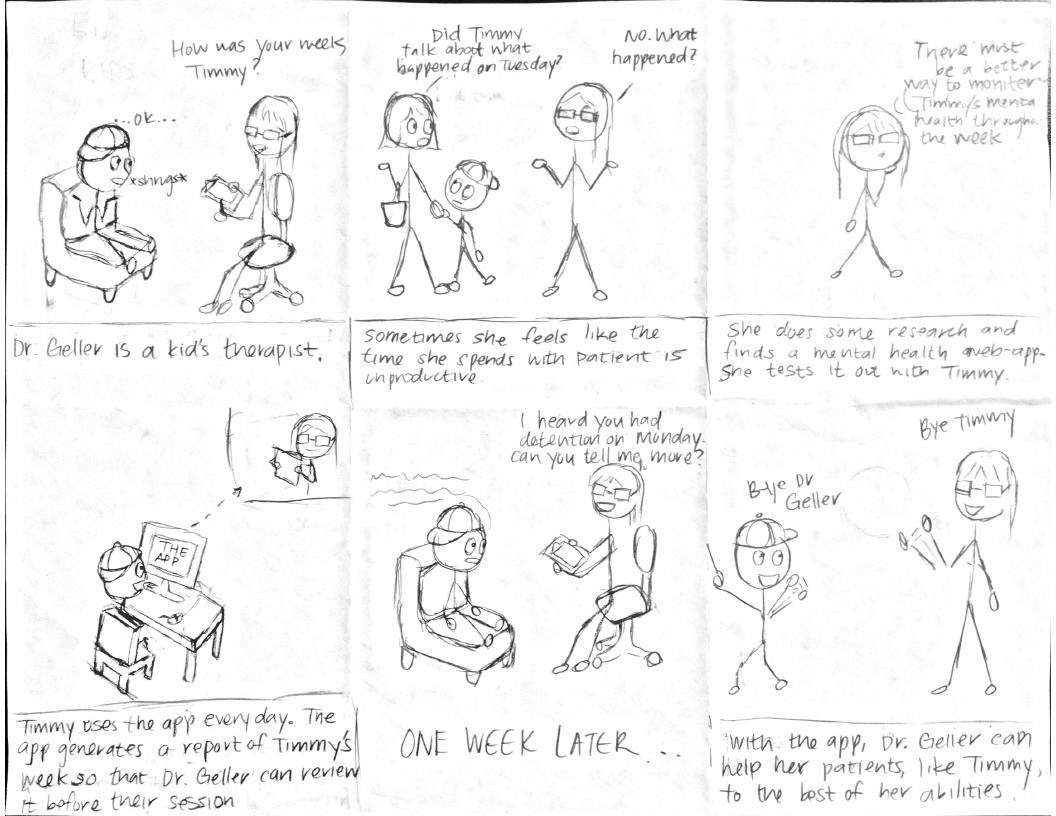 How was your week,
Timmy?
...ok...
*shrugs*
Dr. Geller is a kid's therapist.
Did Timmy
talk about what
happened on Tuesday?
No. What
happened?
Sometimes she feels like the
time she spends with patient is
unproductive.
There must
be a better
way to moniter
Timmy's mental
health througho
the week
She does some research and
finds a mental health web-app.
She tests it out with Timmy.
THE
APP
Timmy uses the app every day. The
app generates a report of Timmy's
week so that Dr. Geller can review
it before their session
I heard you had
detention on Monday.
can you tell me more?
ONE WEEK LATER...
Bye Timmy
Bye Dr
Geller
With the app, Dr. Geller can
help her patients, like Timmy,
to the best of her abilities.